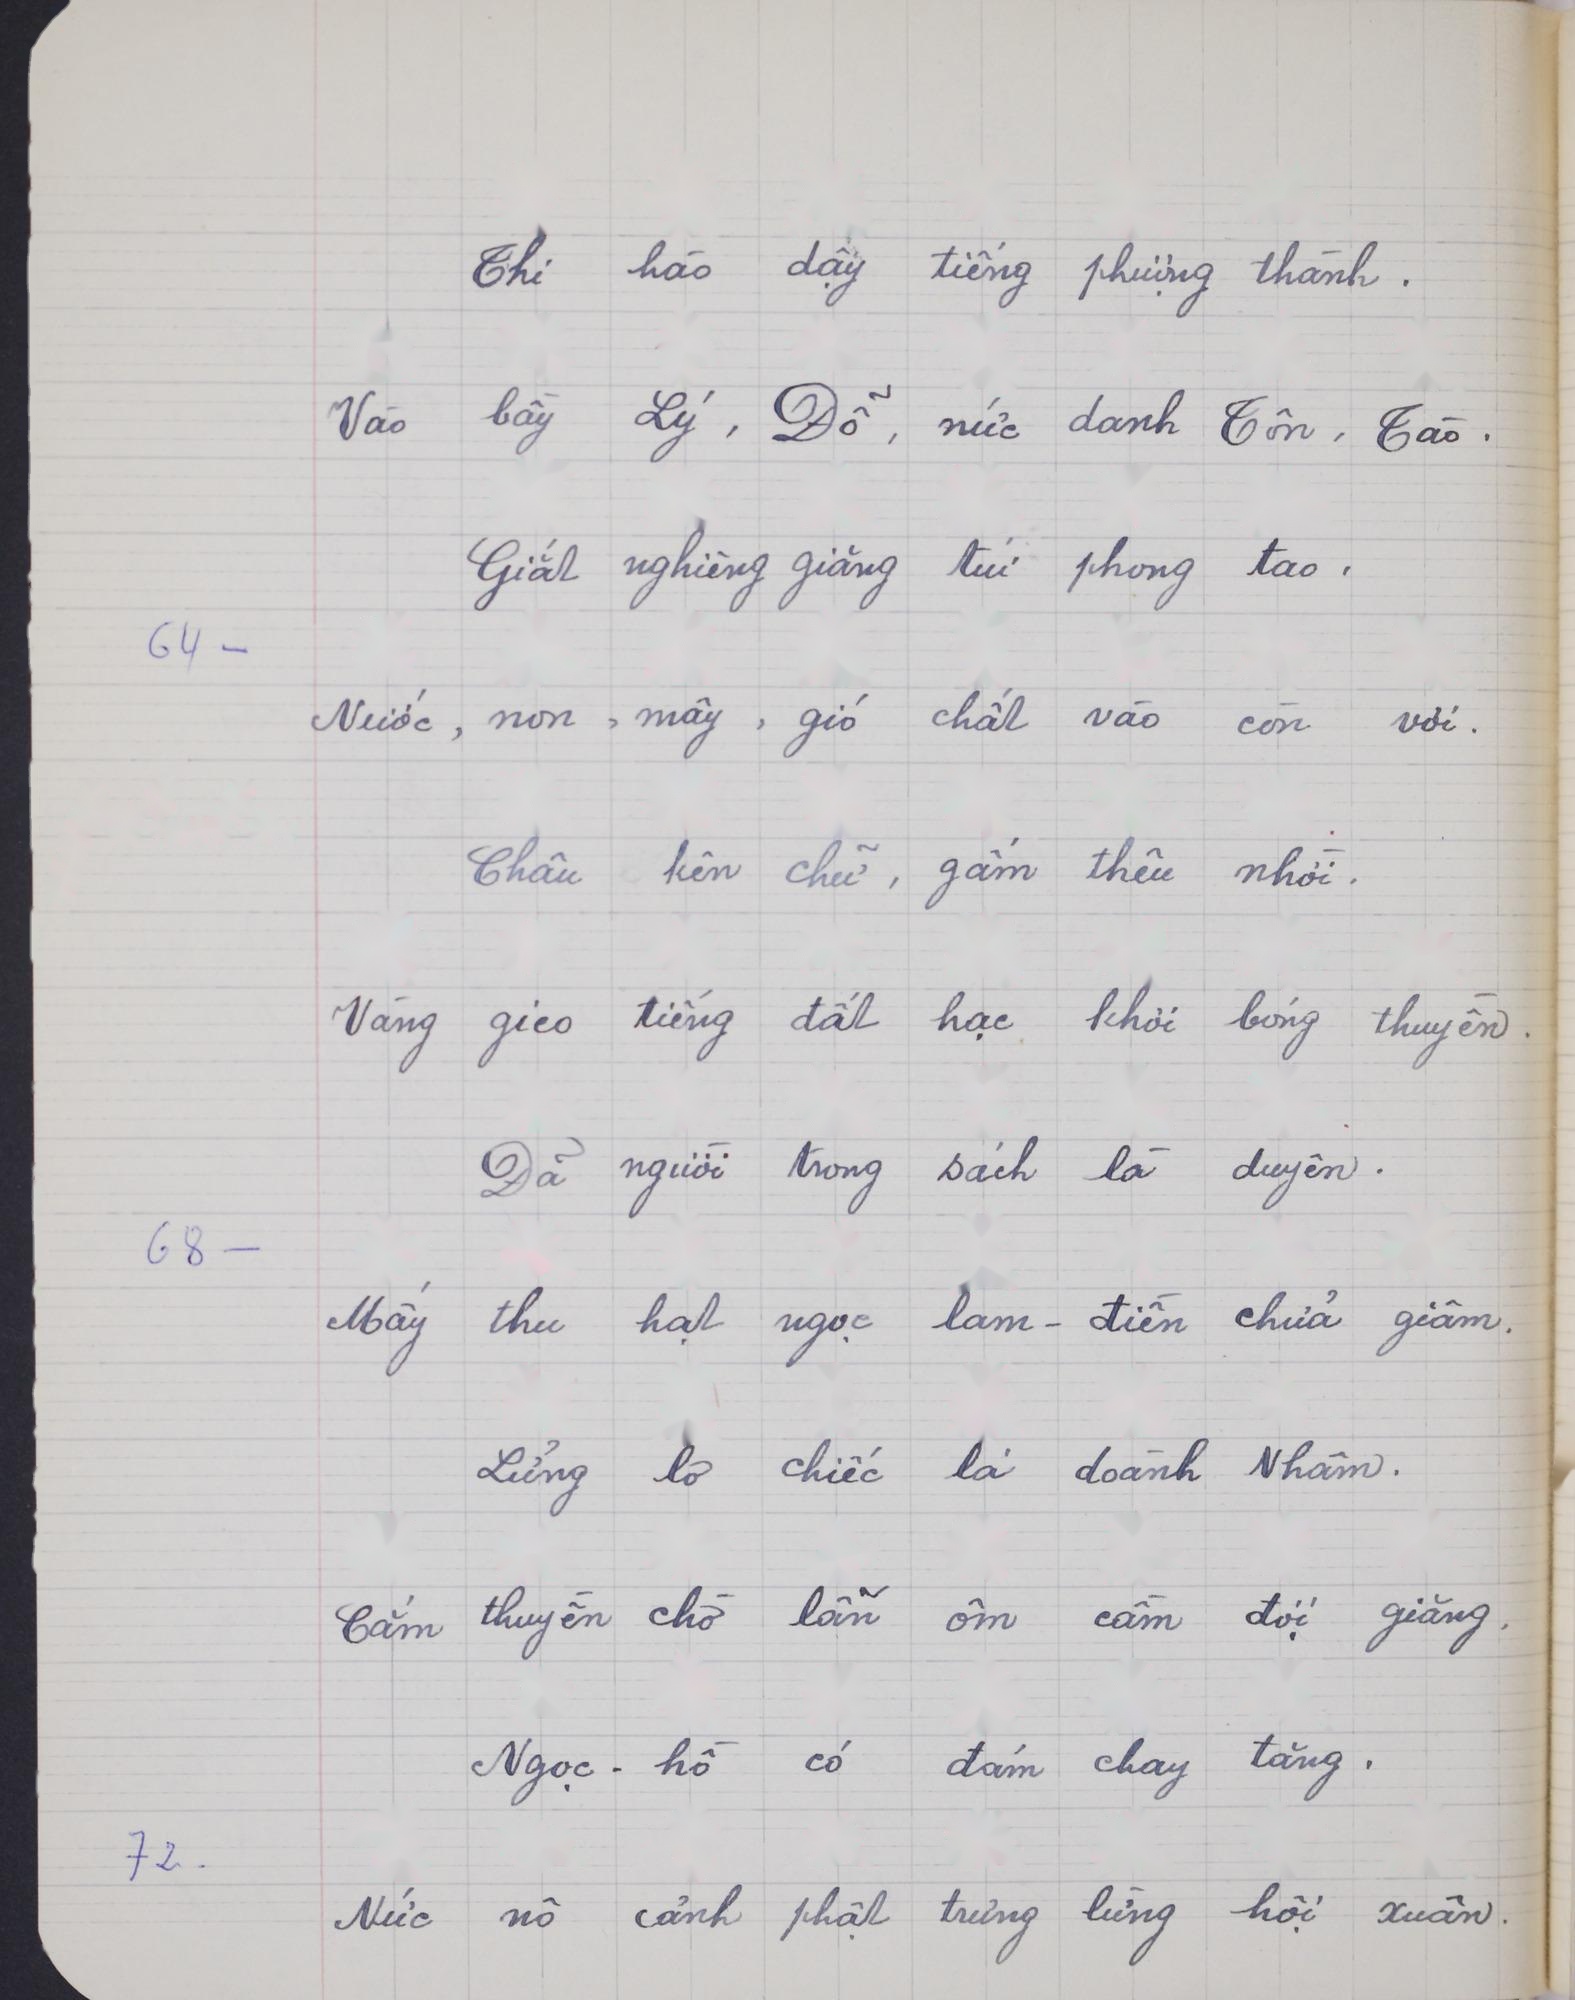 Thi hào dậy tiếng phượng thành.
Vào bầy Lý, Đỗ, nức danh Tôn, Tào.
Giắt nghiêng giăng túi phong tao,
64 -
Nước, non, mây, gió chất vào còn vơi.
Châu kên chữ, gấm thêu nhời.
Vàng gieo tiếng đất hạc khơi bóng thuyền.
Đã người trong sách là duyên.
68 -
Mấy thu hạt ngọc lam-điền chưa giâm.
Lửng lơ chiếc lá doành Nhâm.
Cắm thuyền chờ lẫn ôm cầm đợi giăng.
Ngọc-hồ có đám chay tăng,
72.
Nức nô cảnh phật trưng lừng hội xuân.